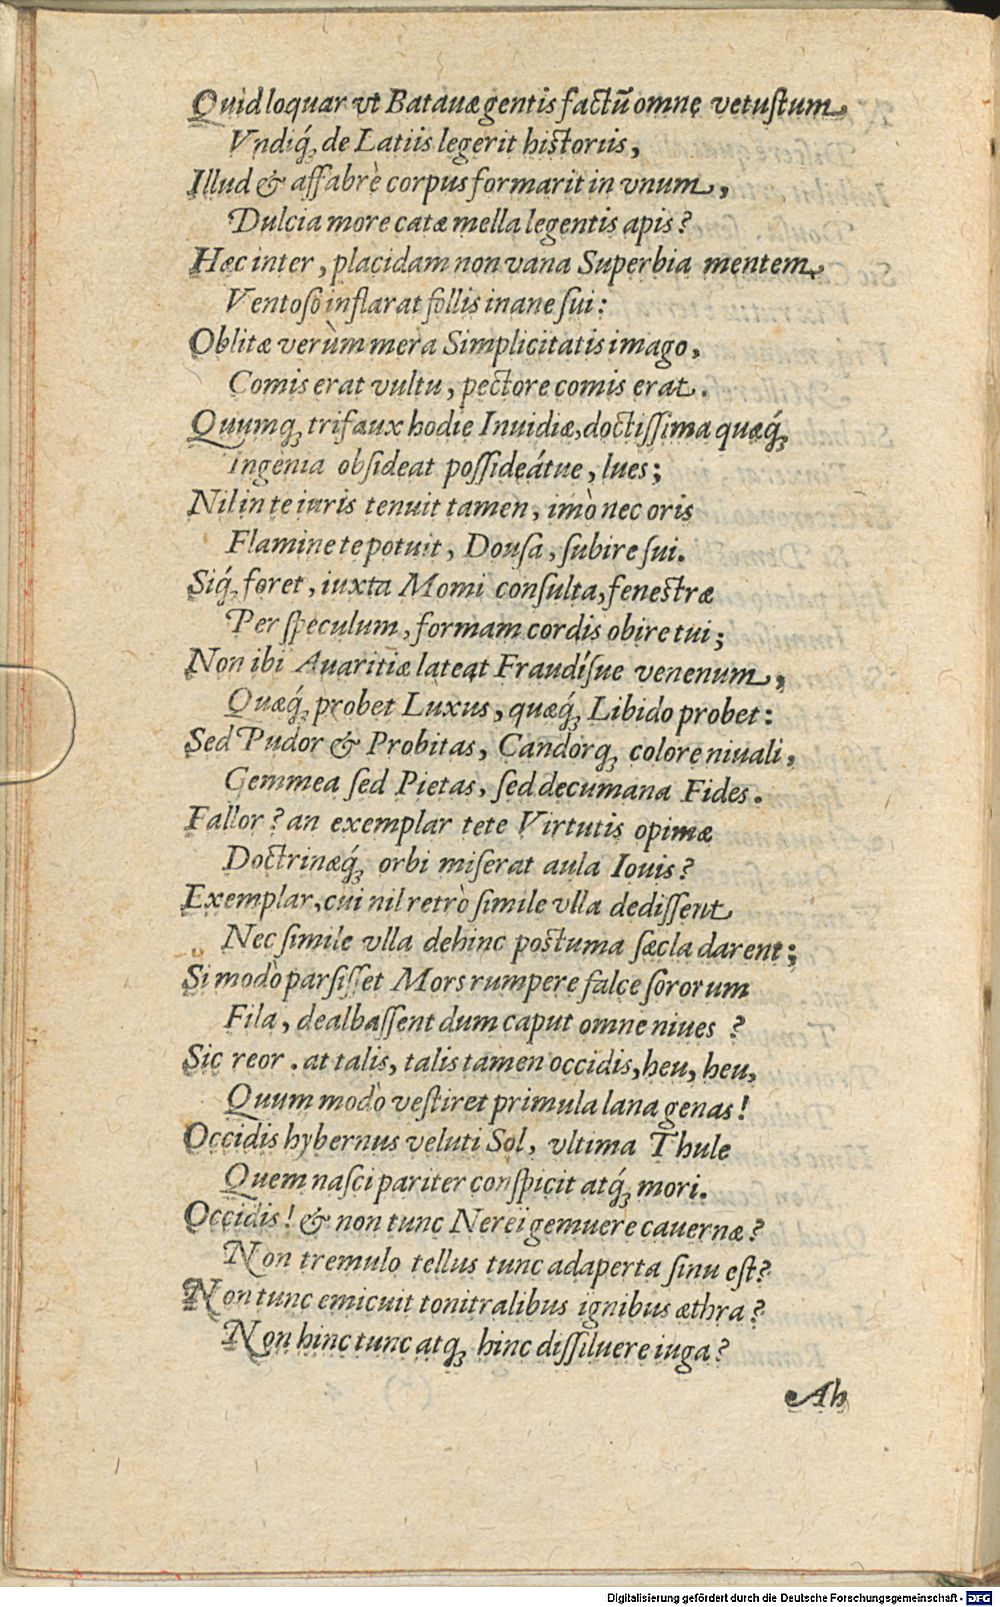 Quid loquar vt Batauæ gentis factũ omne vetuſtum
Vndiq́; de Latiis legerit hiſtoriis,
Illud & aſſabrè corpus formarit in vnum,
Dulcia more catæ mella legentis apis?
Hæc inter, placidam non vana Superbia mentem
Ventoſo inflarat follis inane ſui:
Oblitæ verùm mera Simplicitatis imago,
Comis erat vultu, pectore comis erat.
Quumq; trifaux hodie Inuidiæ, doctiſſima quæq́;
Ingenia obſideat poſſideátue, lues;
Nil in te iuris tenuit tamen, imò nec oris
Flamine te potuit, Douſa, ſubire ſui.
Siq́; foret, iuxta Momi conſulta, feneſtræ
Per ſpeculum, formam cordis obire tui;
Non ibi Auaritiæ lateat Fraudíſue venenum,
Quæq́; probet Luxus, quæq́; Libido probet:
Sed Pudor & Probitas, Candorq; colore niuali,
Gemmea ſed Pietas, ſed decumana Fides.
Fallor? an exemplar tete Virtutis opimæ
Doctrinæq́; orbi miſerat aula Iouis?
Exemplar, cui nil retrò ſimile vlla dediſſent
Nec ſimile vlla dehinc poſtuma ſæcla darent;
Si modò parſiſſet Mors rumpere falce ſororum
Fila, dealbaſſent dum caput omne niues?
Sic reor. at talis, talis tamen occidis, heu, heu,
Quum modò veſtiret primula lana genas!
Occidis hybernus veluti Sol, vltima Thule
Quem naſci pariter conſpicit atq́; mori.
Occidis! & non tunc Nereï gemuere cauernæ?
Non tremulo tellus tunc adaperta ſinu eſt?
Non tunc emicuit tonitralibus ignibus æthra?
Non hinc tunc atq; hinc diſſiluere iuga?
Ah
Digitalisierung gefördert durch die Deutsche Forschungsgemeinschaft - DFG